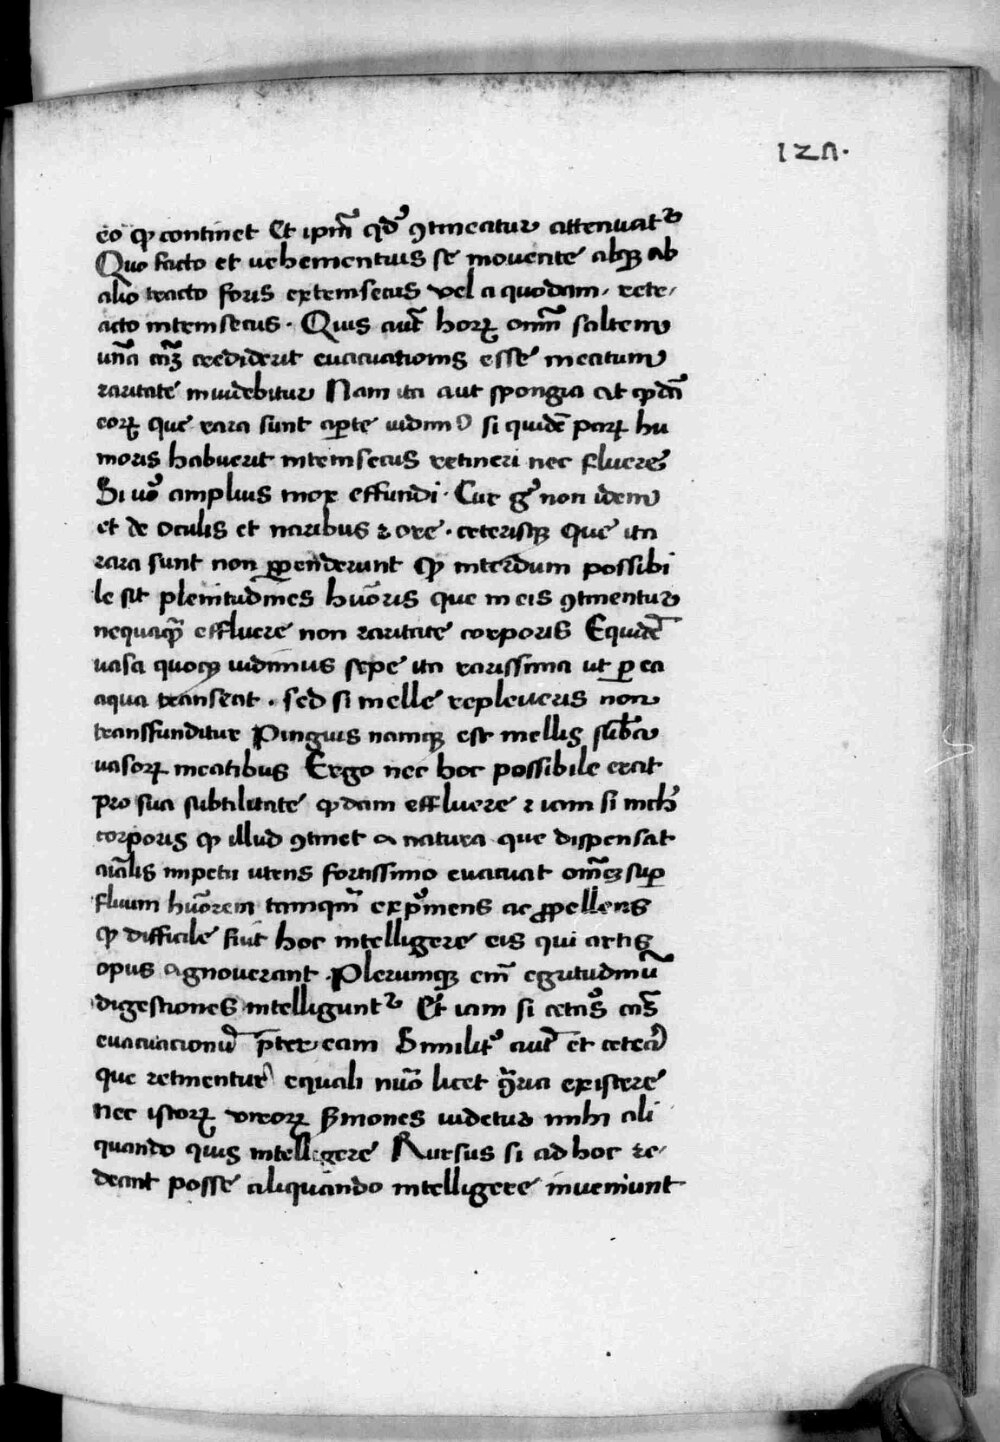 127.
eo qp continet Et ipm̄ qd' ꝯtineatur attenuatr
Quo facto et uehementius se mouente absq̄ ab
alio tracto foris extrinsecus vel a quodam, retr-
acto intrinsecus. Quis aut̄ horꝝ om̄m̄ saltem
unā cāz crediderit euacuationis esse meatum
raritate inuidebitur Nam ita aut spongia et qdā
eorꝝ que rara sunt aperte uidimꝰ si quidē parū hu
moris habuerit intrinsecus retineri nec fluere
Si uº amplius mox effundi. Cur gº non idem
et de oculis et naribus ꝛ ore. ceterisq̄ que ita
rara sunt non ꝑpenderunt qp interdum possibi
le sit plenitudines hūoris que in eis ꝯtinentur
nequaq̄ effluere non raritate corporis Equidē
uasa quoqꝫ uidimus sepe ita rarissima ut ꝑ ea
aqua transeat. sed si melle repleueris non
transfunditur Pinguis namq̄ est mellis sūba
uasorꝝ meatibus Ergo nec hoc possibile erat
pro sua subtilitate qdam effluere ꝛ iam si nich'
corporis qp illud ꝯtinet a natura que dispensat
aīalis impetu utens fortissimo euacuat om̄ēs suꝑ
fluum hūorem tamqm̄ exprimens ac ꝓpellens
qp difficile fuit hoc intelligere eis qui artis
opus agnouerant. Plerumq̄ em̄ egritudinū
digestiones intelliguntr Et iam si ceta̅s cās
euacuacionū p̄ter eam Similitº aut̄ et cetera
que retinentur equali mō licet ꝯria existere
nec istorꝝ uirorꝝ sermones uidetur mihi ali
quando quis intelligere Rursus si ad hoc re-
deant posse aliquando intelligere inueniunt